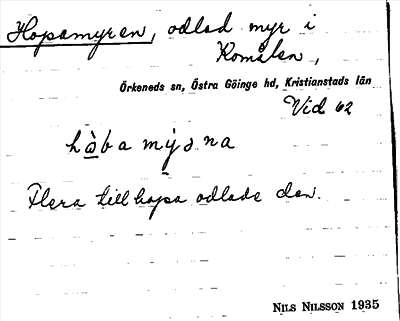 Hopamyren, odlad myr i
Romålen,
Örkeneds sn, Östra Göinge hd, Kristianstads län
Vid 62
hàbamýɜna
Flera tillhopa odlade den.
NILS NILSSON 1935